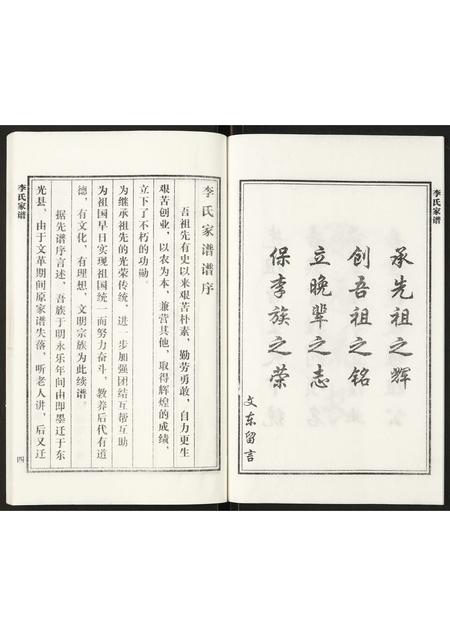 李氏家谱
承先祖之辉
创吾祖之铭
立晚辈之志
保李族之荣
文东留言
李氏家谱谱序
吾祖先有史以来艰苦朴素，勤劳勇敢，自力更生
艰苦创业，以农为本，兼营其他，取得辉煌的成绩，
立下了不朽的功勋。
为继承祖先的光荣传统，进一步加强团结互帮互助
为祖国早日实现祖国统一而努力奋斗，教养后代有道
德，有文化，有理想，文明宗族为此续谱。
据先谱序言述，吾族于明永乐年间由即墨迁于东
光县，由于文革期间原家谱失落，听老人讲，后又迁
李氏家谱
四